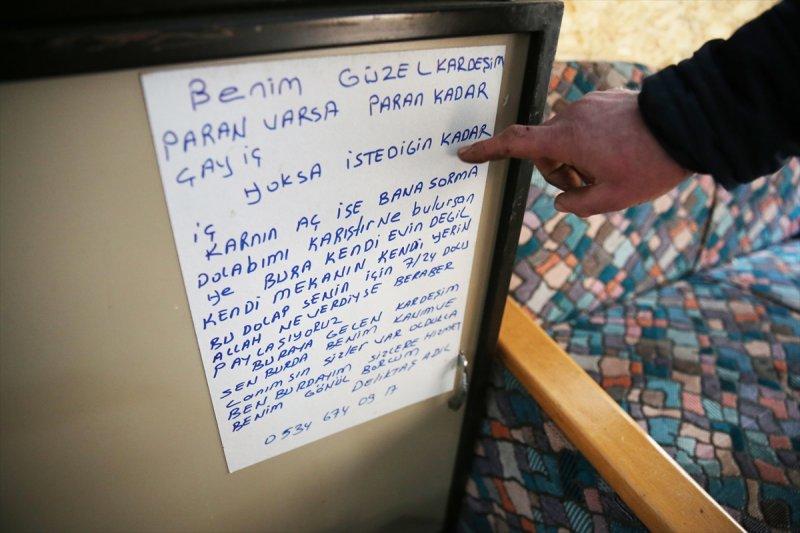 Benim GÜZEL KARDEŞİM
PARAN VARSA PARAN KADAR
ÇAY İÇ
YOKSA İSTEDİĞİN KADAR
İÇ
KARNIN AÇ İSE BANA SORMA
DOLABIMI KARIŞTIR NE bulursan
ye BURA KENDİ EVİN DEĞİL
KENDİ MEKANIN KENDİ YERİN
BU DOLAP SENİN İÇİN 7/24 DOLU
ALLAH NE VERDİYSE BERABER
PAYLAŞIYORUZ
BURAYA GELEN KARDEŞİM
SEN BURDA BENİM KANIM VE
CANIMSIN SİZLER VAR OLDUKCA
BEN BURDAYIM SİZLERE HİZMET
BENİM GÖNÜL BORCUM
DELİKTAŞ ADİL
0 534 674 09 17